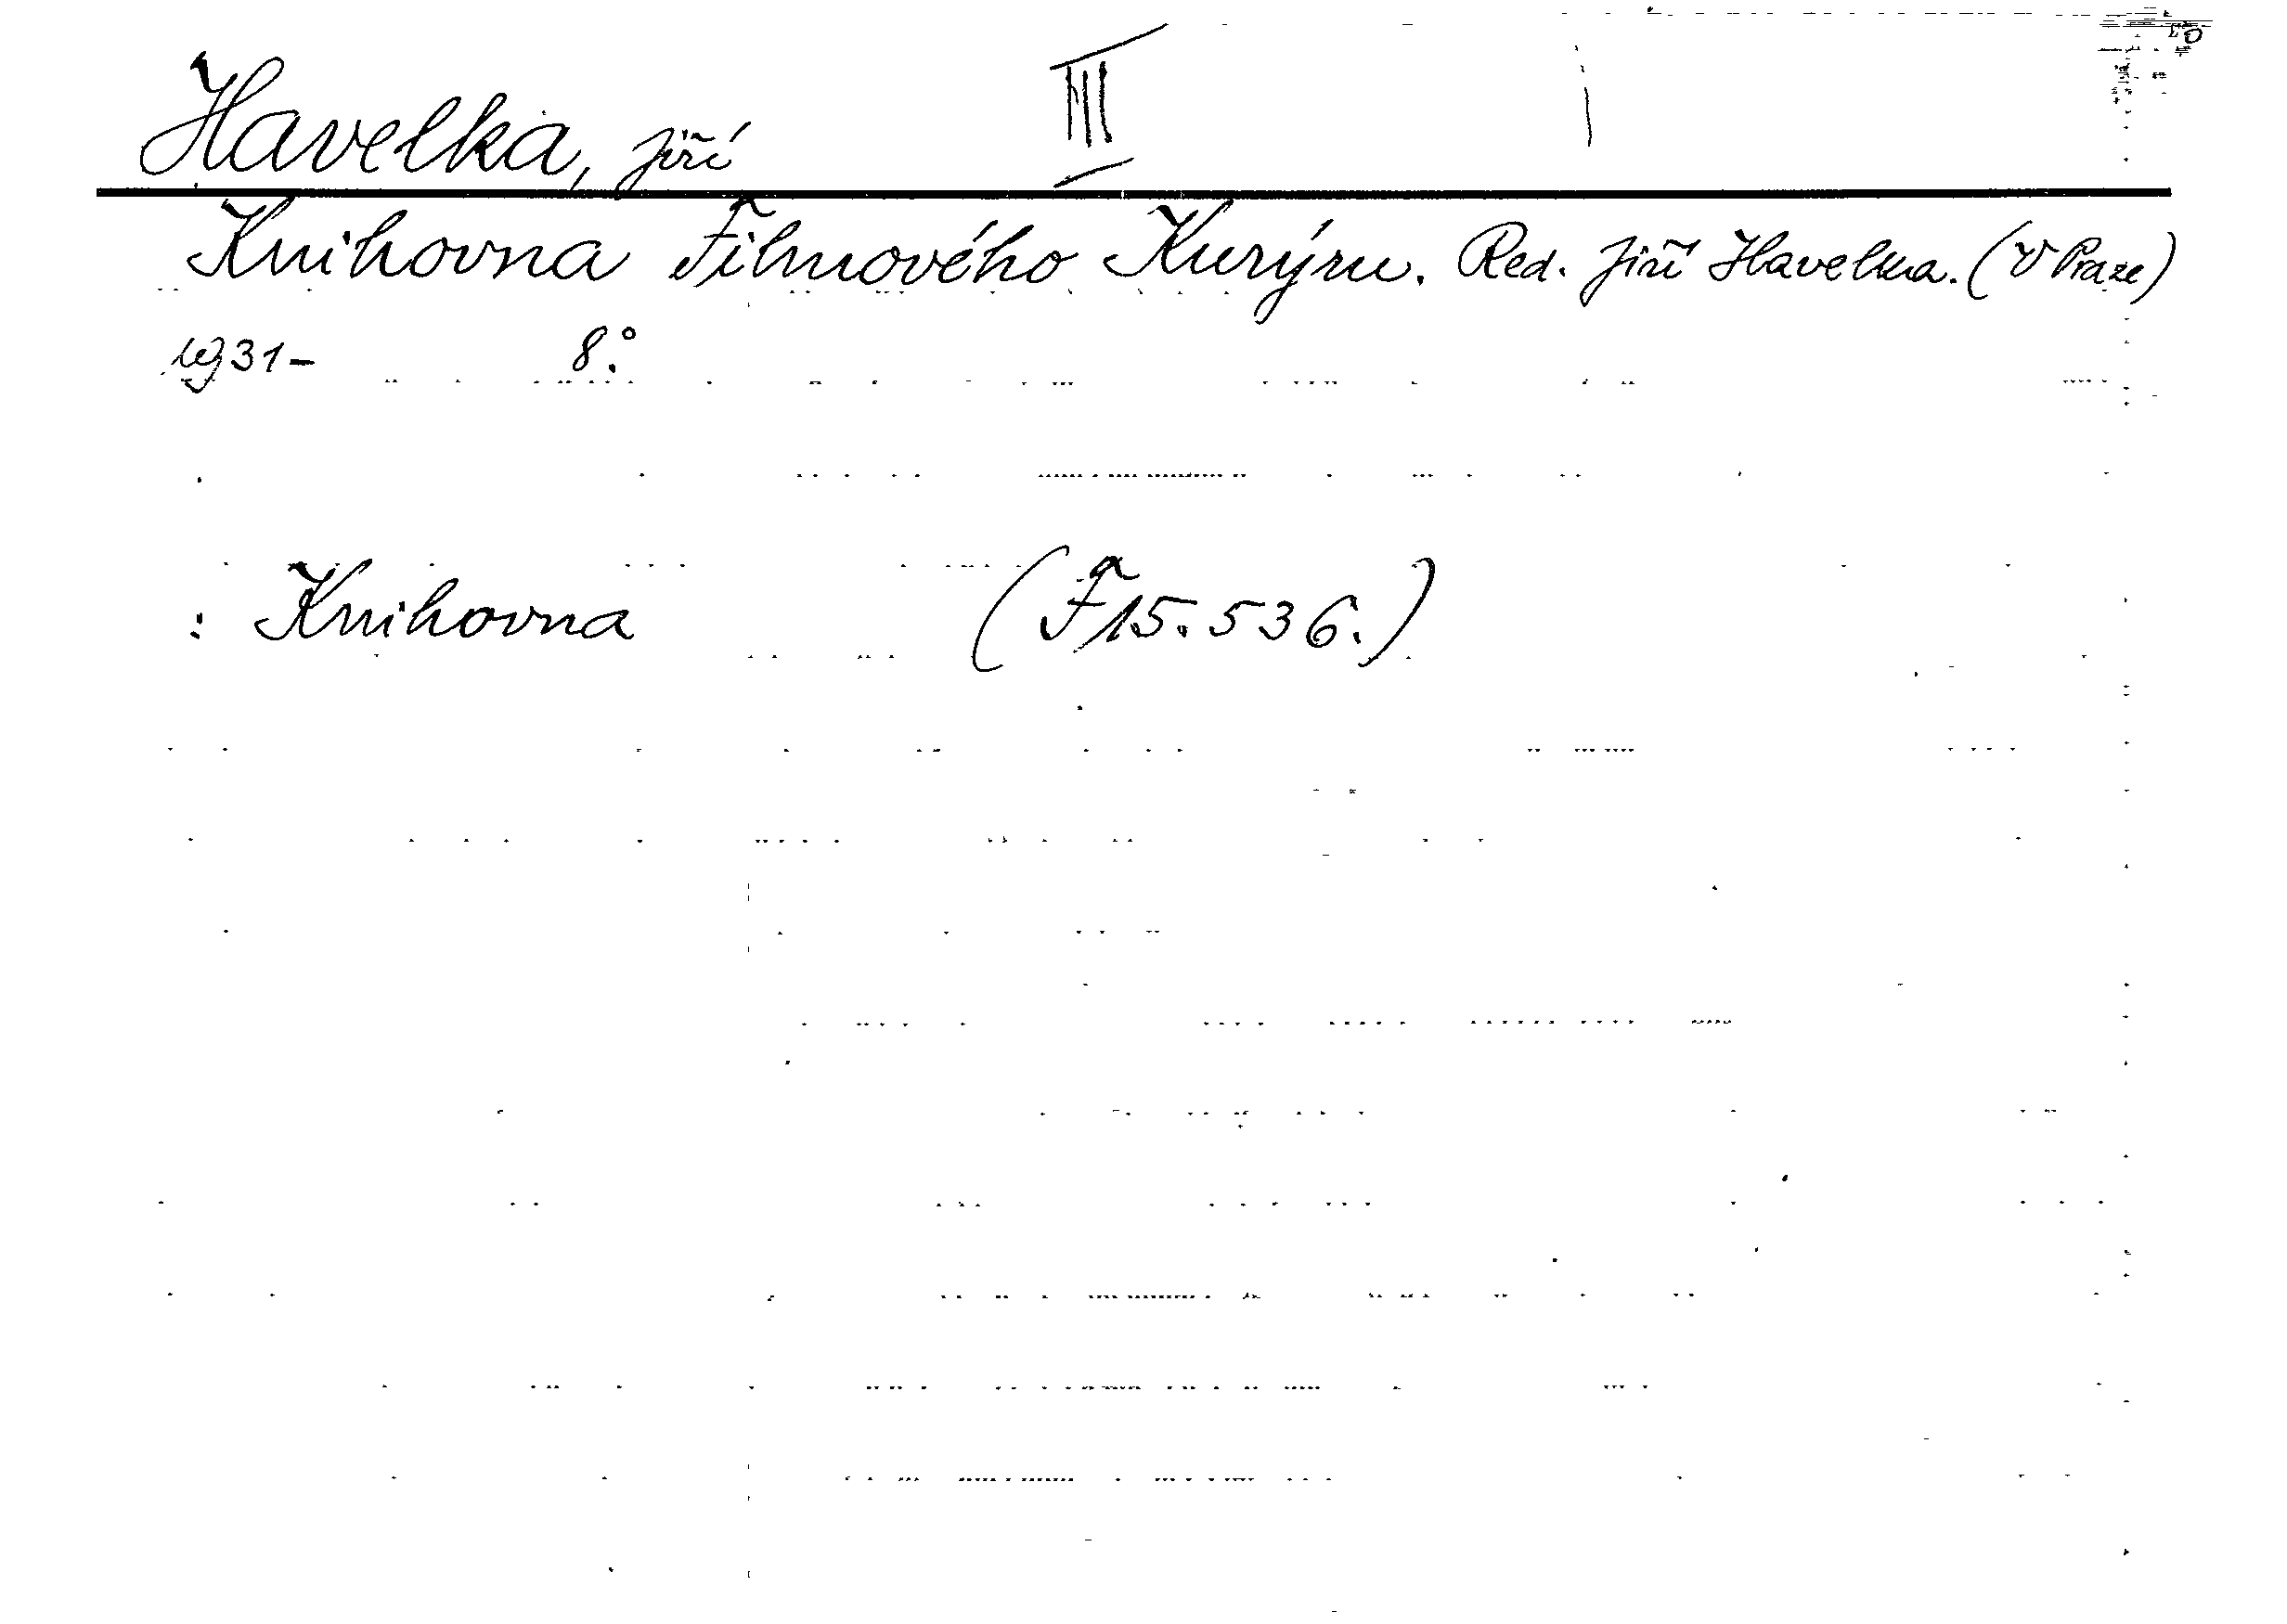 Havelka, Jiří III
Knihovna Filmového Kurýru. Red. Jiří Havelka. (V Praze)
1931- 8.°
: Knihovna (F 15.536.)